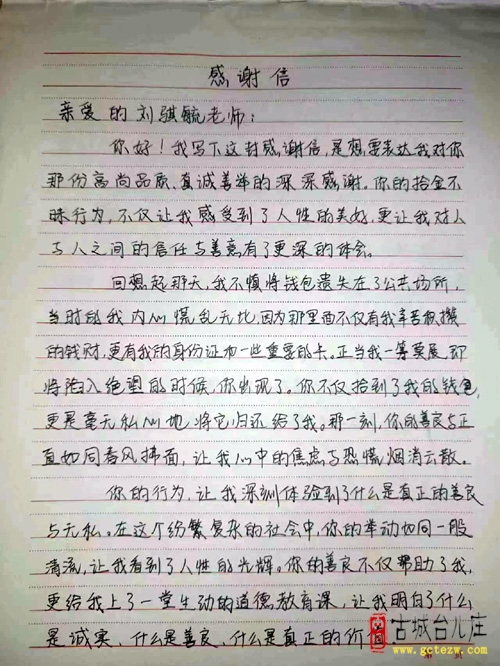 感谢信
亲爱的刘骐毓老师:
你好!我写下这封感谢信,是想要表达我对你
那份高尚品质、真诚善举的深深感谢。你的拾金不
昧行为,不仅让我感受到了人性的美好,更让我对人
与人之间的信任与善意有了更深的体会。
回想起那天,我不慎将钱包遗失在了公共场所,
当时的我内心慌乱无比,因为那里面不仅有我辛苦积攒
的钱财,更有我的身份证和一些重要的卡。正当我一筹莫展,即
将陷入绝望的时候,你出现了。你不仅拾到了我的钱包,
更是毫无私心地将它归还给了我。那一刻,你的善良与正
直如同春风拂面,让我心中的焦虑与恐慌烟消云散。
你的行为,让我深刻体验到了什么是真正的善良
与无私。在这个纷繁复杂的社会中,你的举动如同一股
清流,让我看到了人性的光辉。你的善良不仅帮助了我,
更给我上了一堂生动的道德教育课,让我明白了什么
是诚实、什么是善良、什么是真正的价值
古城台儿庄
www.gctezw.com